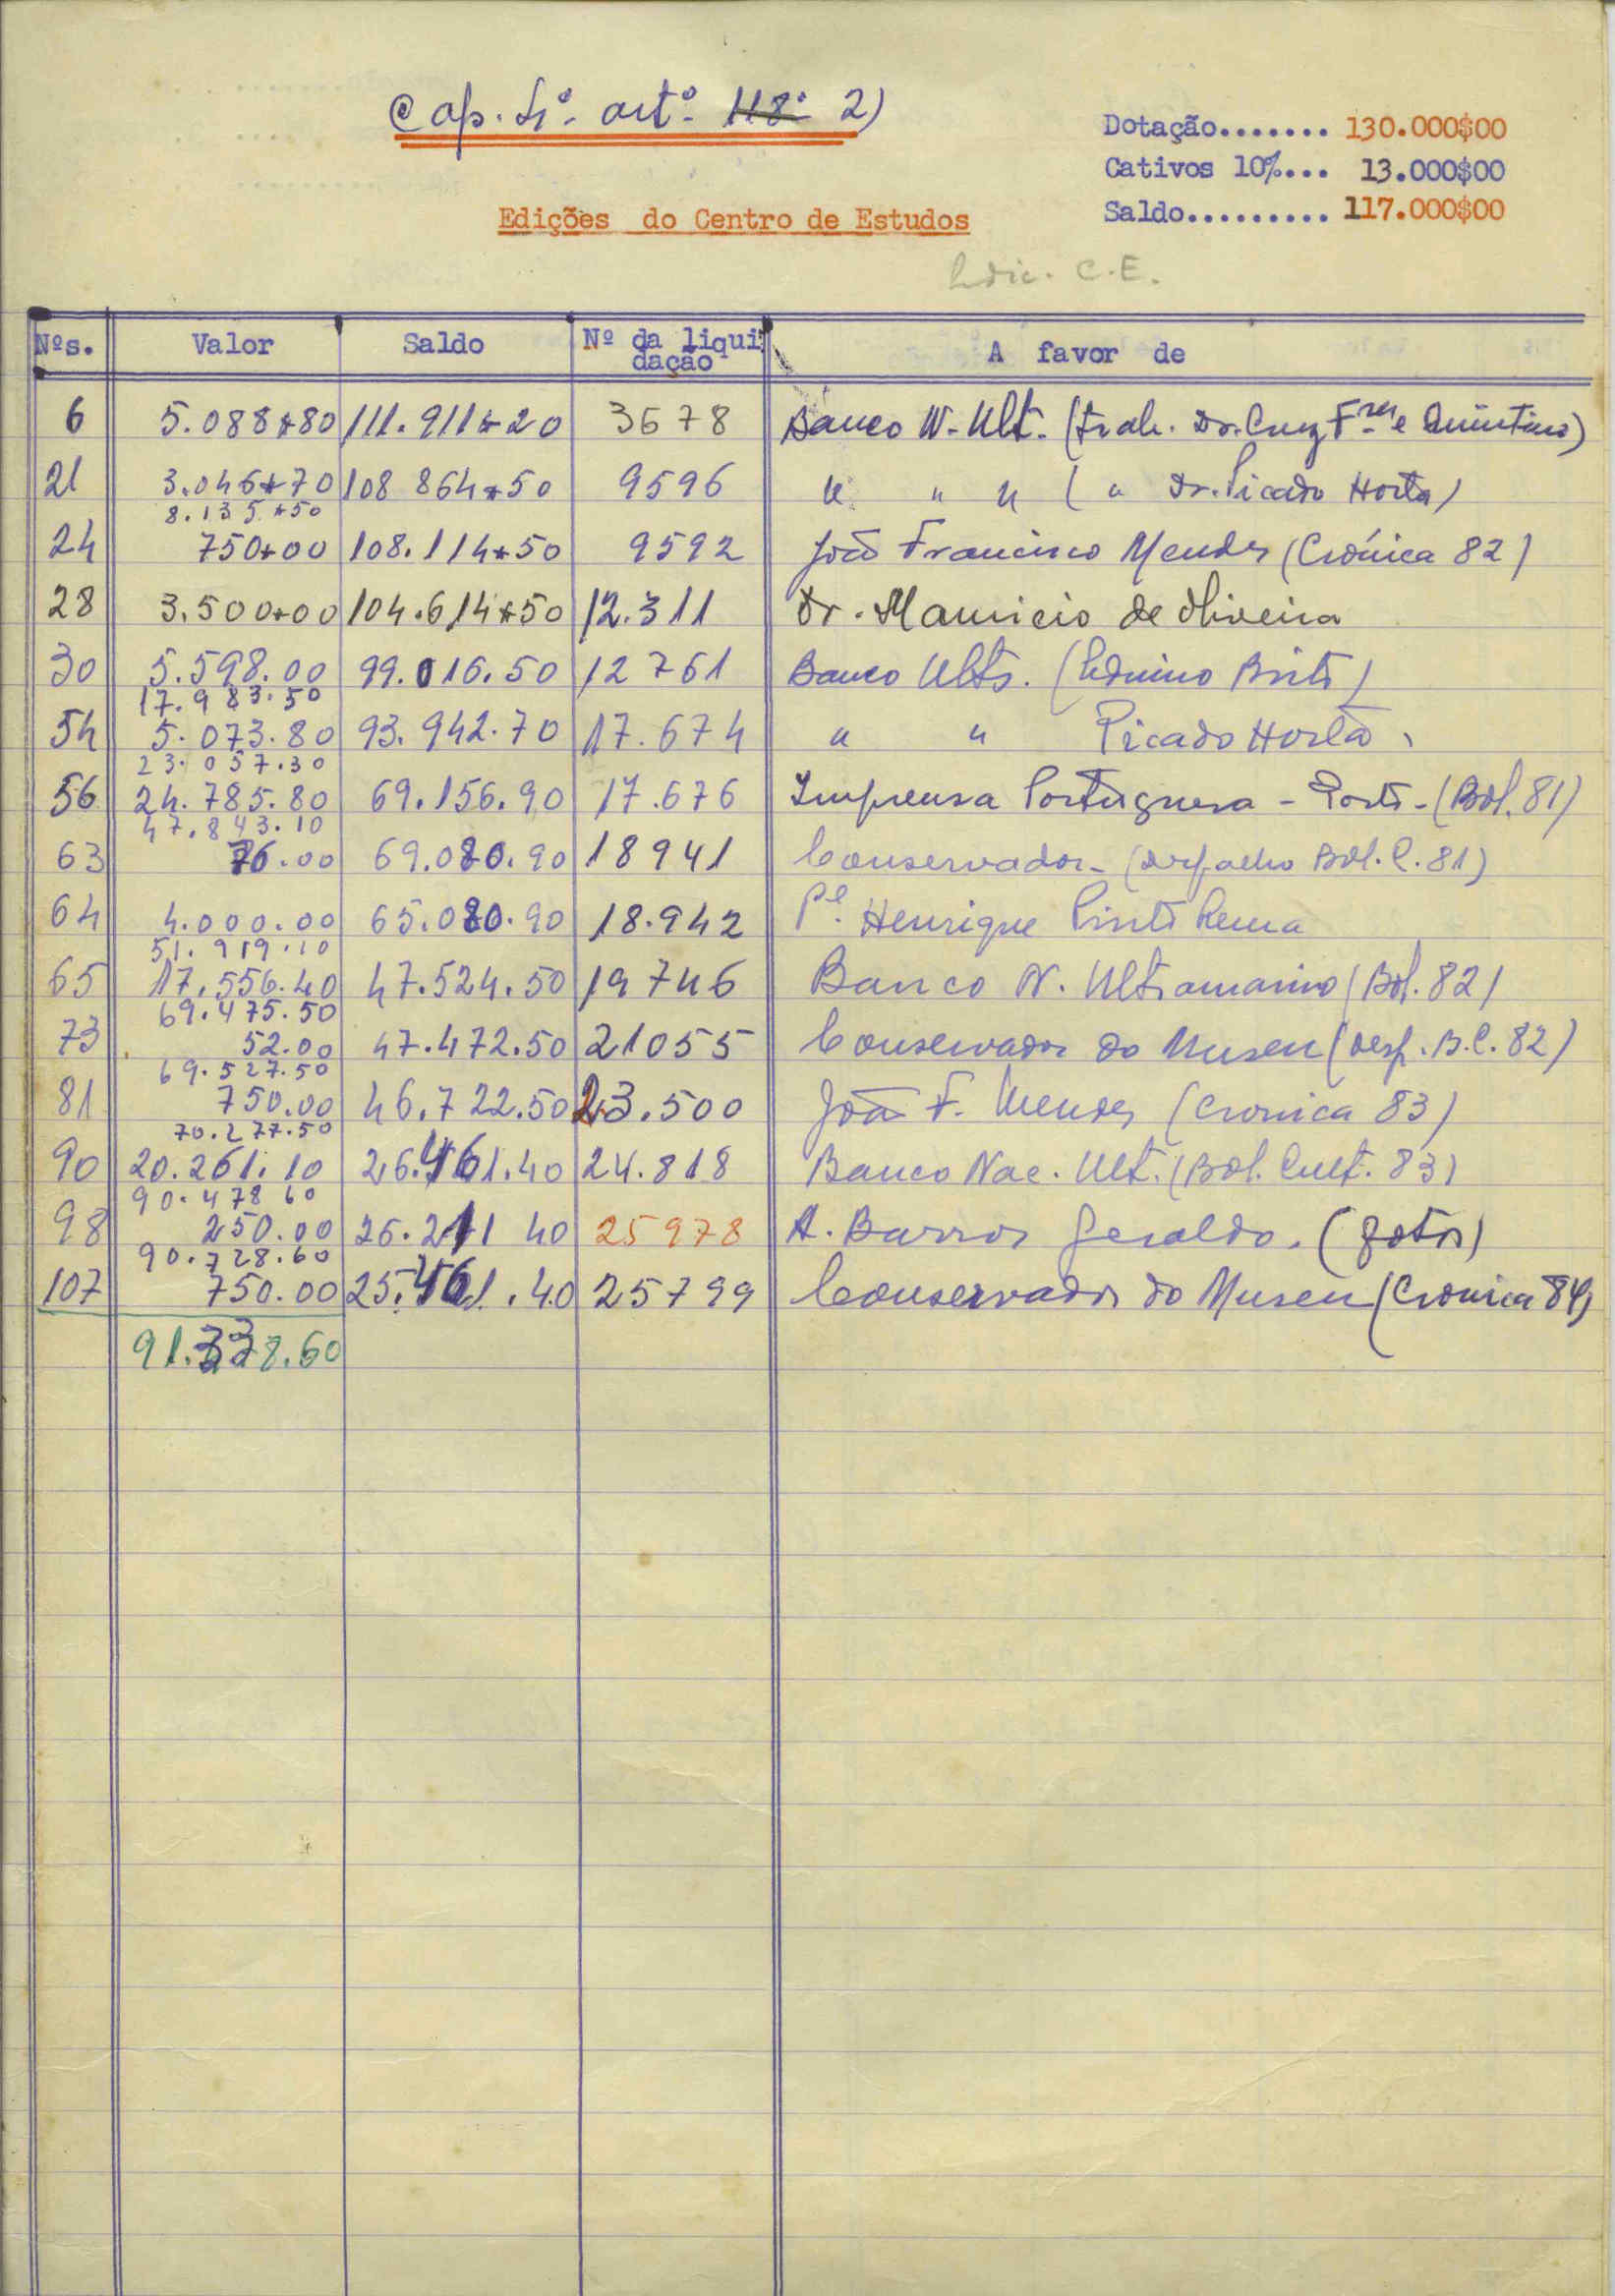 Cap. 4º. artº. 118º 2)
Dotação....... 130.000$00
Cativos 10%... 13.000$00
Saldo......... 117.000$00
Edições do Centro de Estudos
Edic. C.E.
Nºs. Valor Saldo Nº da liqui A favor de
dação
6 5.088*80 111.911*20 3678 Banco N. Ult. (trab. Dr. Cruz Frres e Quintino)
21 3.046*70 108 864*50 9596 " " " ( " Dr. Picado Horta)
8.135*50
24 750*00 108.114*50 9592 João Francisco Mendes (Crónica 82)
28 3.500*00 104.614*50 12.311 Dr. Mauricio de Oliveira
30 5.598.00 99.016.50 12 761 Banco Ultr. (Edmino Brito)
17.983.50
54 5.073.80 93.942.70 17.674 " " Picado Horta.
23.057.30
56 24.785.80 69.156.90 17.676 Imprensa Portuguesa - Porto - (Bol. 81)
47.843.10
63 76.00 69.080.90 18941 Conservador - (despacho Bol. C. 81)
64 4.000.00 65.080.90 18.942 Pe. Henrique Pinto Rema
51.919.10
65 17.556.40 47.524.50 19746 Banco N. Ultramarino (Bol. 82)
69.475.50
73 52.00 47.472.50 21055 Conservador do Museu (desp. B.C. 82)
69.527.50
81 750.00 46.722.50 23.500 João F. Mendes (Cronica 83)
70.277.50
90 20.261.10 26.461.40 24.818 Banco Nac. Ult. (Bol. Cult. 83)
90.478 60
98 250.00 26.211 40 25978 A. Barros Geraldo. (fotos)
90.728.60
107 750.00 25.461.40 25799 Conservador do Museu (Cronica 84)
91.338.60